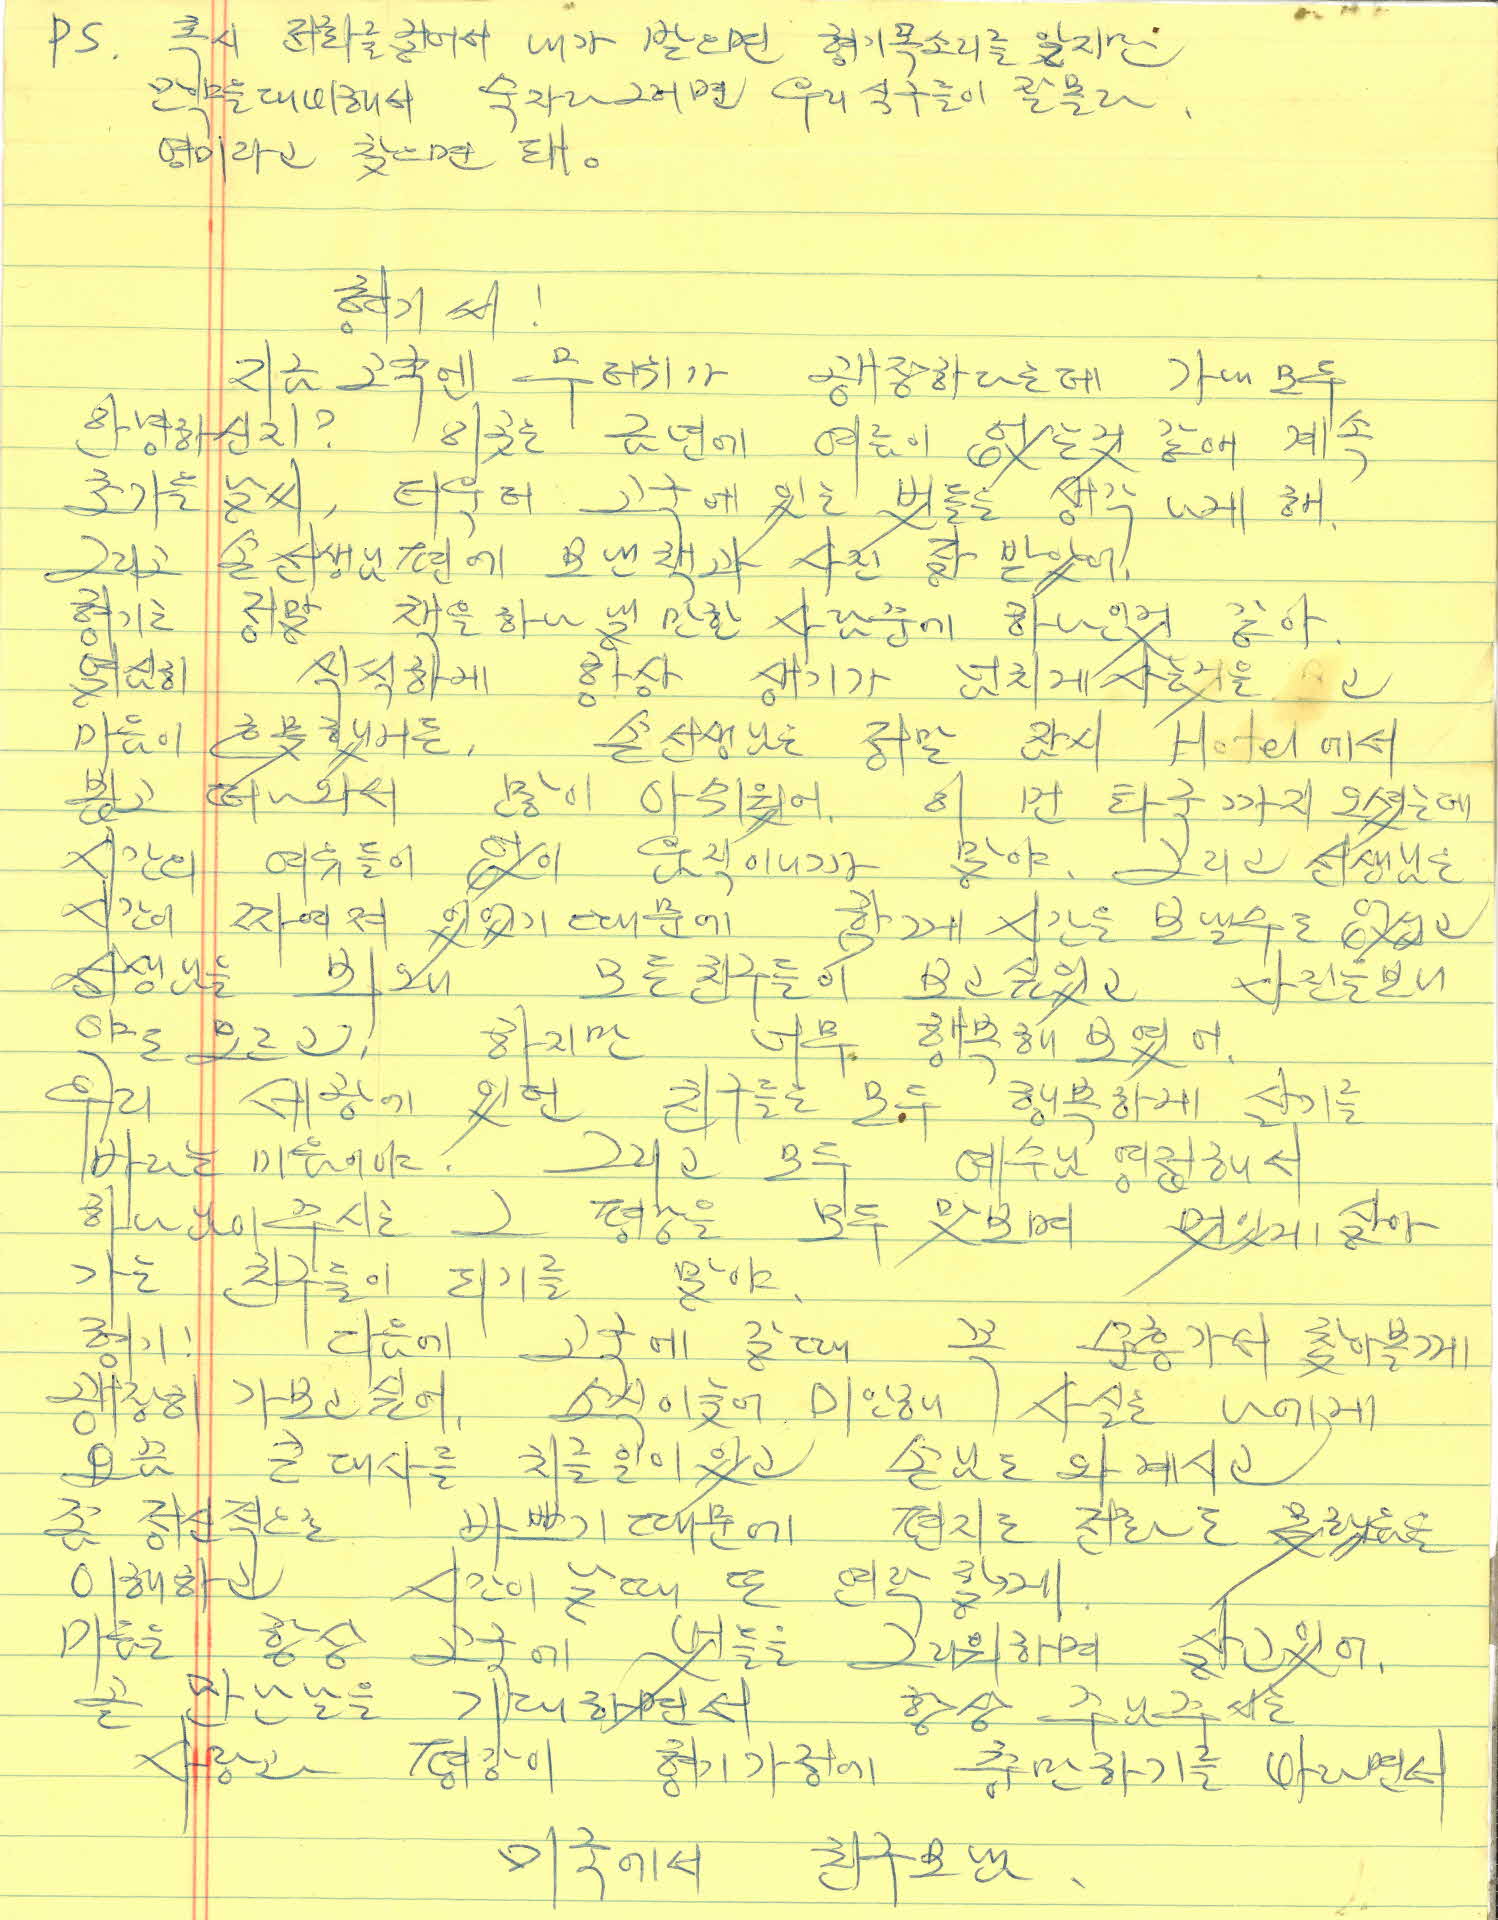 PS. 혹시 전화를 걸어서 내가 받으면 형기목소리를 알지만
만약을 대비해서 숙자라 그러면 우리 식구들이 잘몰라.
영미라고 찾으면 돼.
형기 씨!
지금 고국엔 무더위가 굉장하다는데 가내 모두
안녕하신지? 이곳은 금년에 여름이 없는것 같애 계속
초가을 날씨, 더욱더 고국에 있는 벗들을 생각나게 해.
그리고 손선생님편에 보낸책과 사진 잘 받았어.
형기는 정말 책을하나낼만한 사람중에 하나인것 같아.
열심히 씩씩하게 항상 생기가 넘치게 사는것을 고
마음이 흐뭇했거든. 손선생님은 정말 잠시 Hotel에서
뵙고 떠나와서 많이 아쉬웠어. 이 먼 타국까지 오셨는데
시간의 여유들이 없이 움직이니까 말야. 그리고 선생님은
시간이 짜여져 있었기 때문에 함께 시간을 보낼수도 없었고
선생님을 뵈오니 모든친구들이 보고싶었고 사진을보니
알도 모르고, 하지만 너무 행복해 보였어.
우리 세광에 있던 친구들은 모두 행복하게 살기를
바라는 마음이야. 그리고 모두 예수님 영접해서
하나님이주시는 그 평강을 모두 맛보며 멋있게 살아
가는 친구들이 되기를 말야.
형기! 다음에 고국에 갈때 꼭 순흥가서 찾아볼께
굉장히 가보고싶어. 소식이늦어 미안해 사실은 나에게
요즘 큰 대사를 치를일이 있고 손님도 와계시고
좀 정신적으로 바쁘기때문에 편지도 전화도 못했음을
이해하고 시간이 날때 또 연락할께.
마음은 항상 고국에 벗들을 그리워하며 살고있어.
곧 만난날을 기대하면서 항상 주님주시는
사랑과 평강이 형기가정에 충만하기를 바라면서
미국에서 친구보냄.